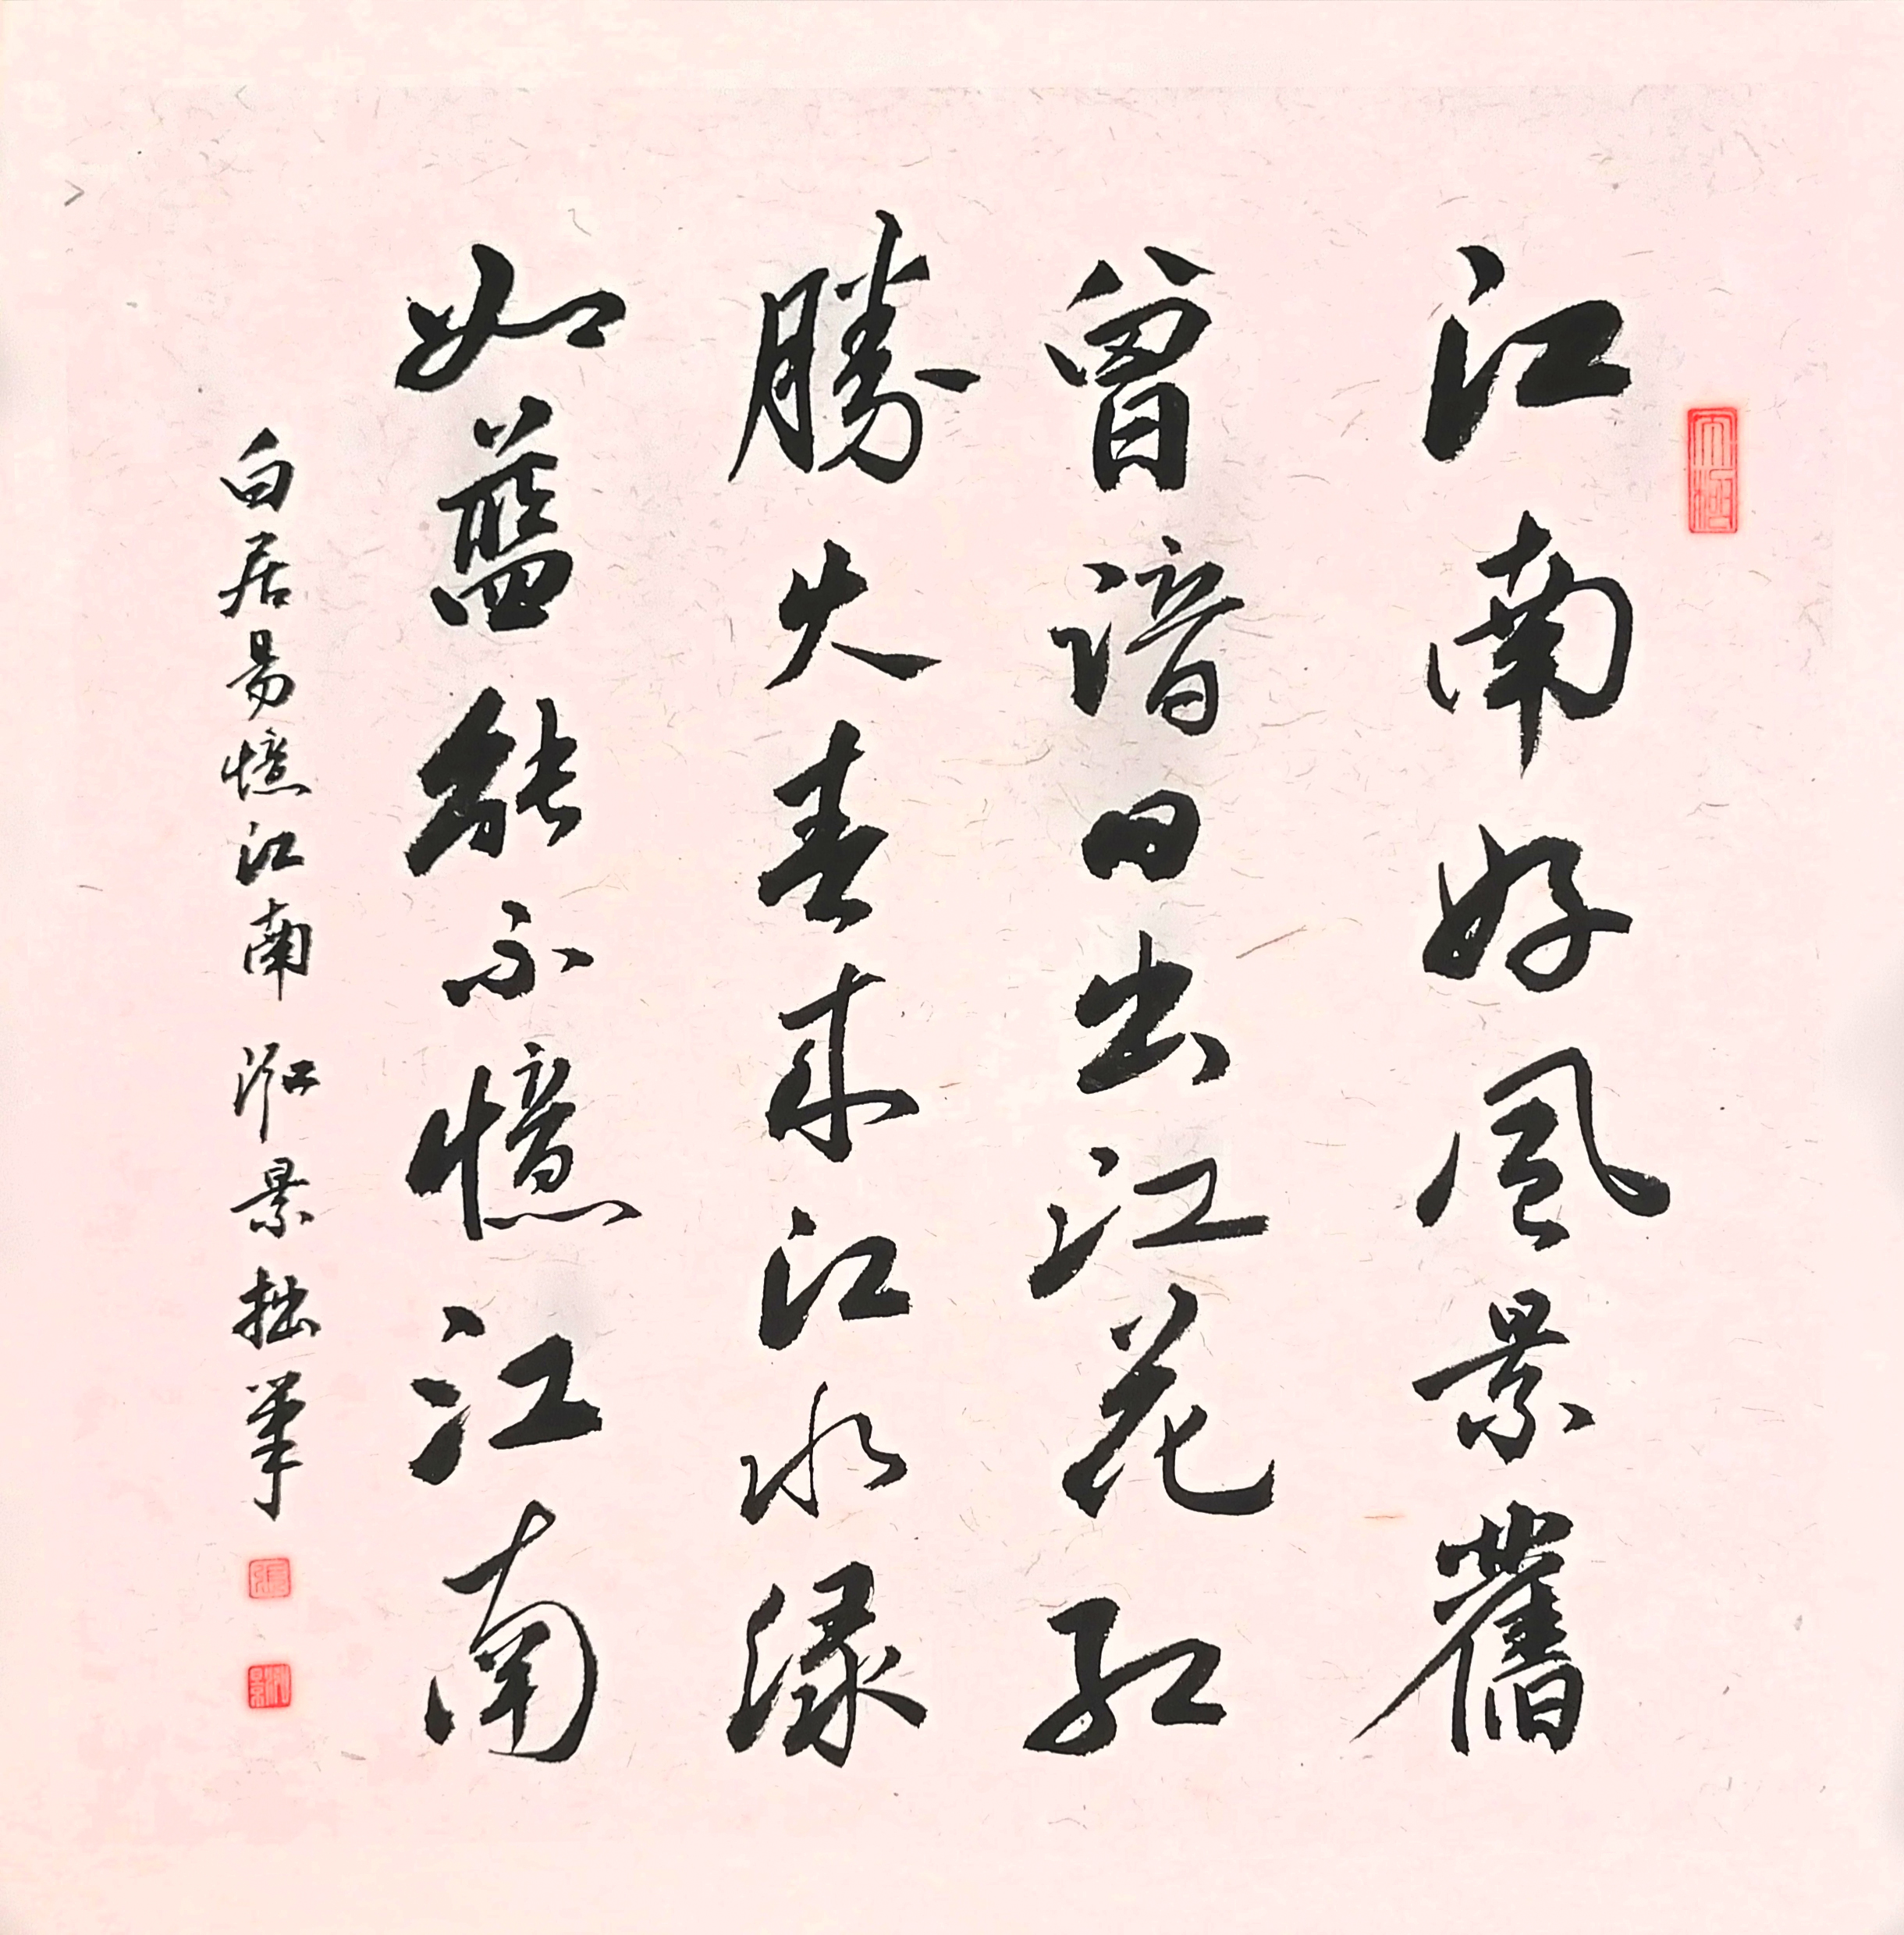 江南好風景舊
曾諳日出江花紅
勝火春來江水緑
如藍能不憶江南
白居易憶江南 泓景拙筆